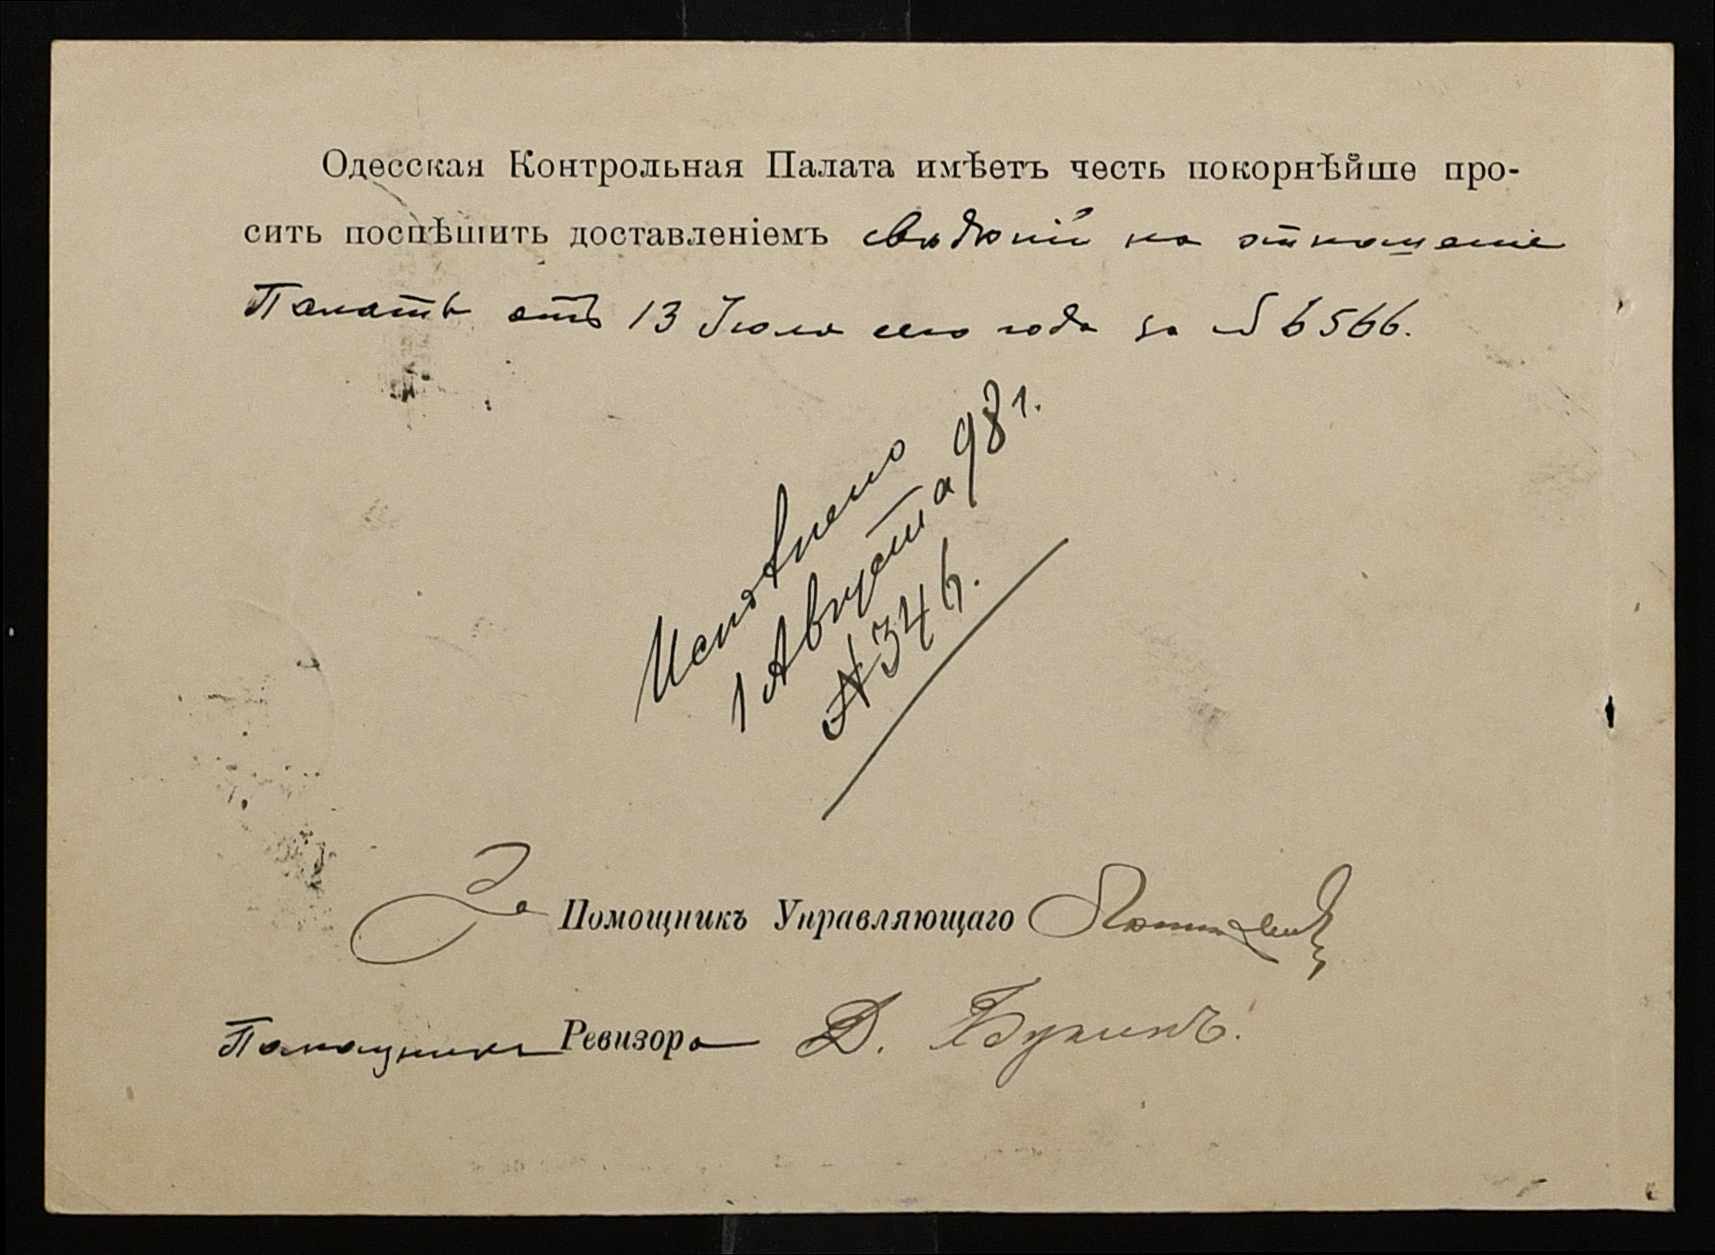 Одесская Контрольная Палата имѣетъ честь покорнѣйше про-
сить поспѣшить доставленіемъ свѣдѣній на отношеніе
Палаты отъ 13 Іюля сего года за № 6566.
Исполнено
1 Августа 98 г.
№ 346.
За Помощникъ Управляющаго
Помощникъ Ревизора Д. Букинъ.